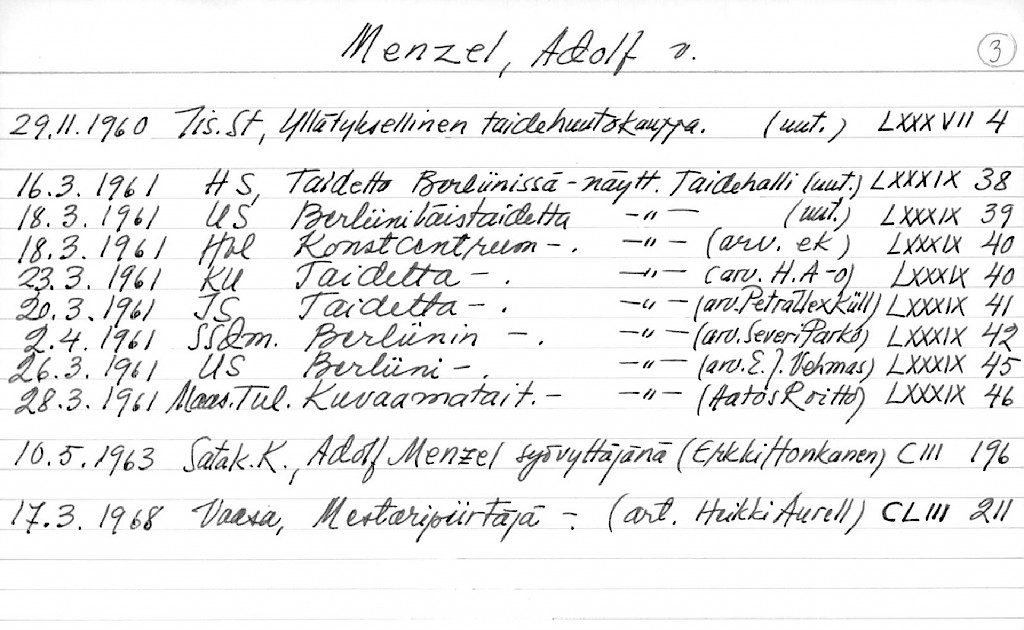 Menzel, Adolf v. 3
29.11.1960 Iis.St, Yllätyksellinen taidehuutokauppa. (uut.) LXXXVII 4
16.3.1961 HS, Taidetto Berliinissä - näytt. Taidehalli (uut.) LXXXIX 38
18.3.1961 US Berliiniläistaidetta -"- (uut.) LXXXIX 39
18.3.1961 Hbl Konstcentrum -. -"- (arv. ek) LXXXIX 40
23.3.1961 KU Taidetta -. -"- (arv. H.A-o) LXXXIX 40
20.3.1961 IS Taidetta -. -"- (arv. Petra Uexküll) LXXXIX 41
2.4.1961 SSdm. Berliinin -. -"- (arv. Severi Parko) LXXXIX 42
26.3.1961 US Berliini -. -"- (arv. E.J. Vehmas) LXXXIX 45
28.3.1961 Maas.Tul. Kuvaamatait. - -"- (Aatos Roitto) LXXXIX 46
10.5.1963 Satak.K., Adolf Menzel syövyttäjänä (Erkki Honkanen) CIII 196
17.3.1968 Vaasa, Mestaripiirtäjä -. (art. Heikki Aurell) CLIII 211